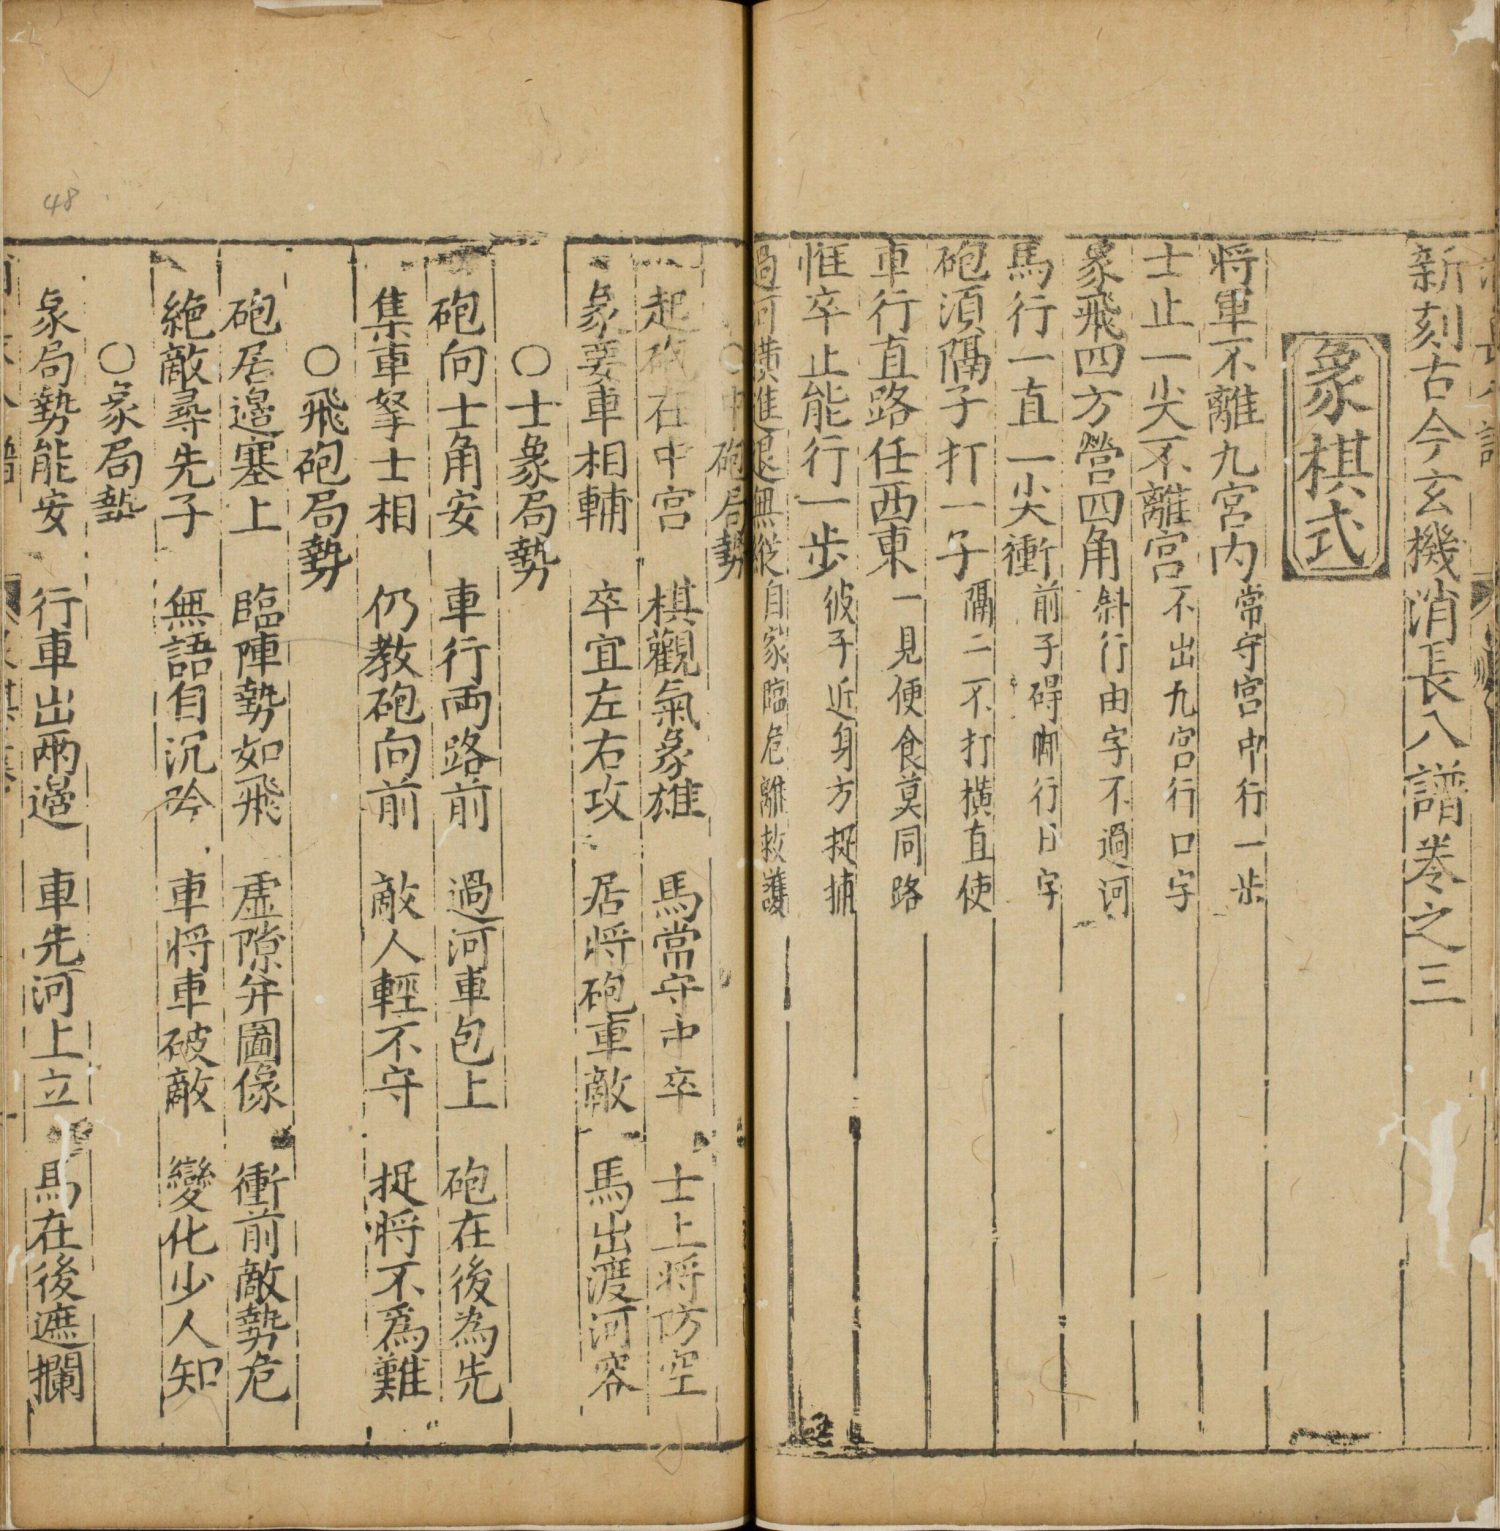 新刻古今玄機消長八譜卷之三
象棋式
将軍不離九宮内 常守宮中行一步
士止一尖不離宮 不出九宮行口字
象飛四方營四角 斜行由字不過河
馬行一直一尖衝 前子碍脚行日字
砲須隔子打一子 隔二不打橫直使
車行直路任西東 一見便食莫同路
惟卒止能行一步 彼子近身方捉捕
過河橫進退無縱 自家臨危離救護
○中砲局勢
起砲在中宮 棋觀氣象雄 馬常守中卒 士上将防空
象要車相輔 卒宜左右攻 居将砲車敵 馬出渡河容
○士象局勢
砲向士角安 車行両路前 過河車包上 砲在後為先
集車拏士相 仍教砲向前 敵人輕不守 捉将不爲難
○飛砲局勢
砲居邉塞上 臨陣勢如飛 虚隙弁圖像 衝前敵勢危
絶敵尋先子 無語自沉吟 車将車破敵 變化少人知
○象局勢
象局勢能安 行車出兩邉 車先河上立 馬在後遮攔
48